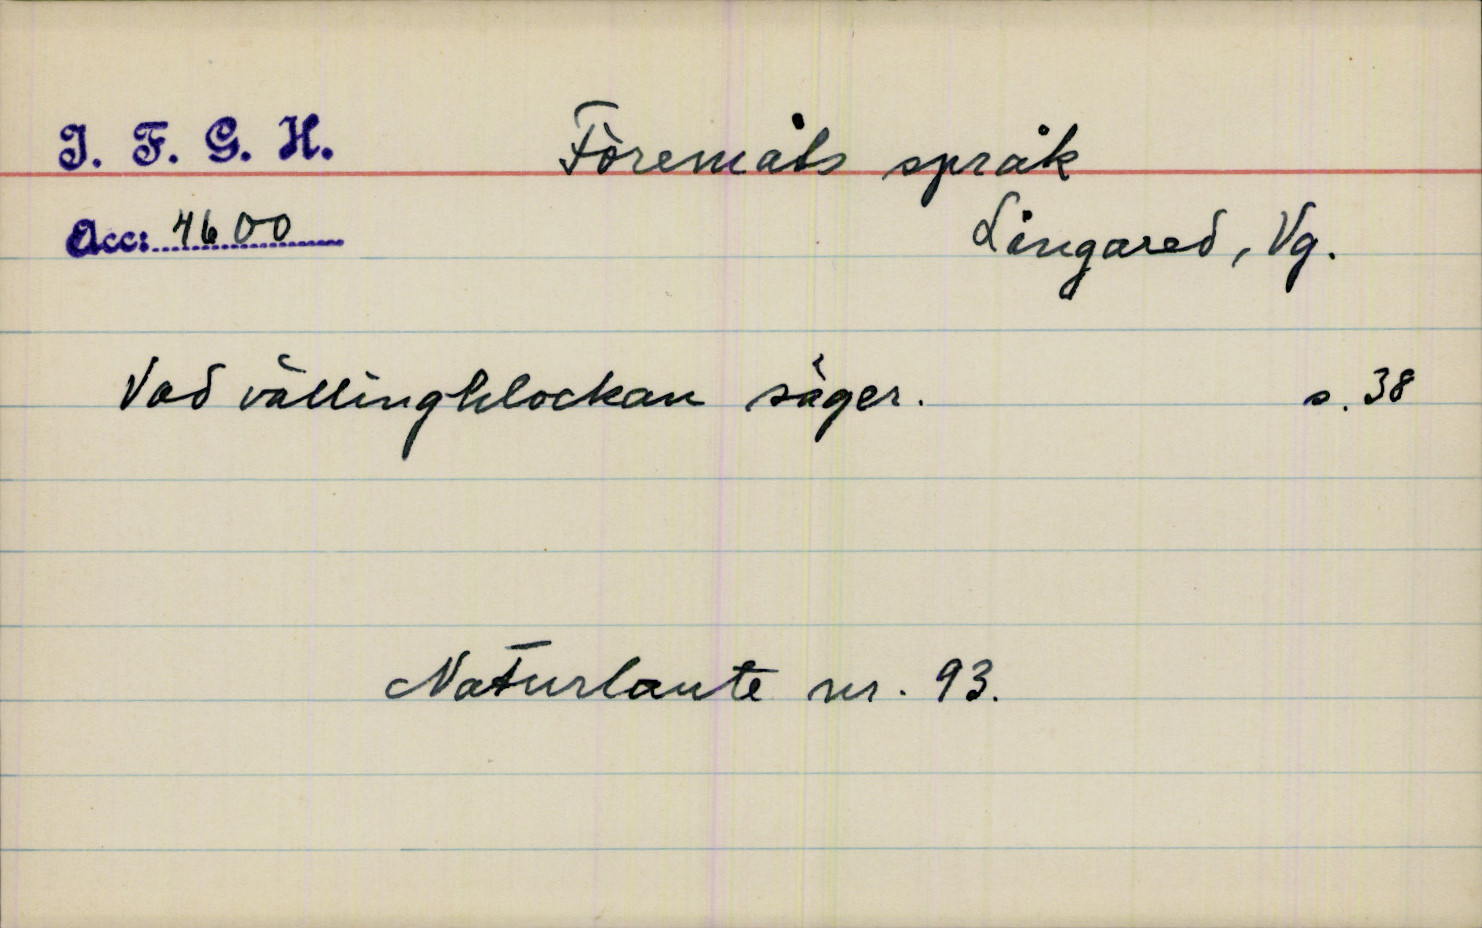 I. F. G. H.
Föremåls språk
Acc: 4600
Längared, Vg.
Vad vällingklockan säger. s. 38
Naturlaute nr. 93.